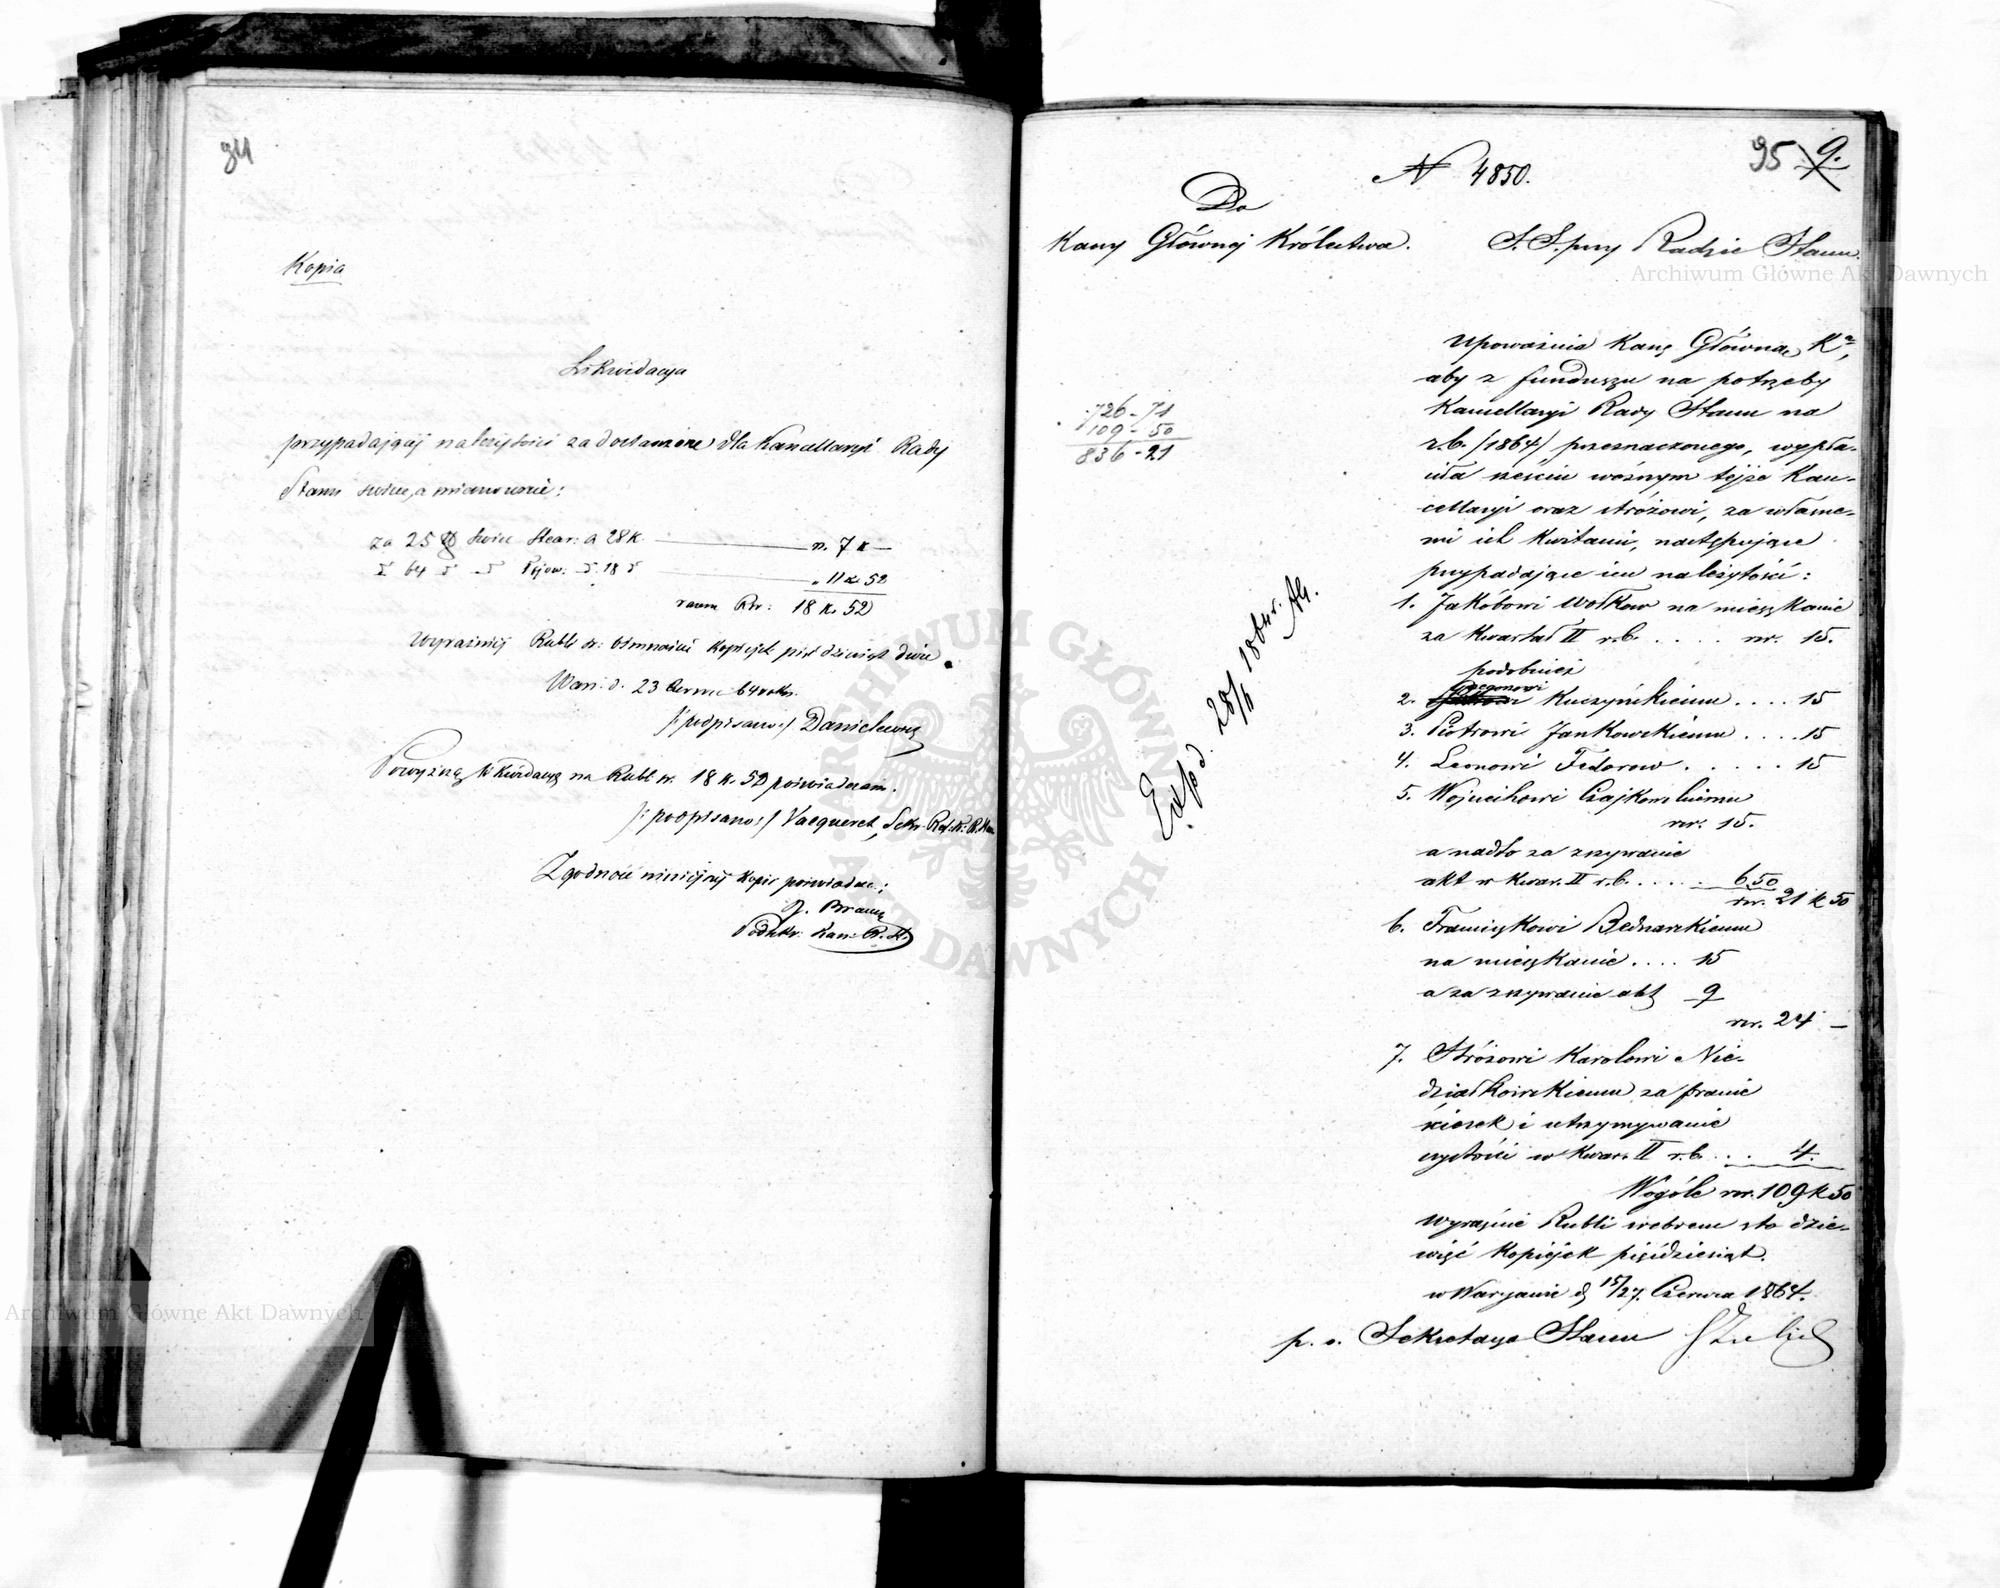 94
Kopia
Likwidacya
przypadającéj należytości za dostawione dla Kancellaryi Rady
Stanu świece, a mianowicie:
za 25 ℔ świec Stear: a 28 k. rs. 7 k —
" 64 " " Łojow: " 18 " " 11 k. 52
razem Rsr: 18 k. 52
wyraźniéj Rubli sr: ośmnaście kopiejek pięćdziesiąt dwie
Wars: d. 23 Czerwca 64 roku.
/:podpisano:/ Danielewicz
Powyższą likwidacyę na Rubli sr. 18 k. 52 poświadczam.
/:podpisano:/ Vacqueret, Sekr.
Zgodność niniejszéj kopii poświadcza:
Podsekr: Kan: R. S.
95 9.
N 4850.
Do
Kassy Głównéj Królestwa.
S. S. przy Radzie Stanu.
Upoważnia Kassę Główną K.,
aby z funduszu na potrzeby
Kancellaryi Rady Stanu na
r.b. /1864/ przeznaczonego, wypła-
ciła sześciu woźnym téjże Kan-
cellaryi oraz stróżowi, za własne-
mi ich kwitami, następujące
przypadające im należytości:
726 - 71
109 - 50
836 - 21
Exped. 28/6 1864 r.
1. Jakóbowi Wołkow na mieszkanie
za kwartał II r.b. . . . . rsr. 15.
podobnież
2. Kuczyńskiemu . . . . 15
3. Piotrowi Jankowskiemu . . . . 15
4. Leonowi Fedorow . . . . . 15
5. Wojciechowi Czajkowskiemu
rsr. 15.
a nadto za zszywanie
akt w kwar. II r.b. . . . . 6.50
rsr. 21 k 50
6. Franciszkowi Bednarskiemu
na mieszkanie . . . . 15
a za zszywanie akt 9
rsr. 24 —
7. Stróżowi Karolowi Nie-
działkowskiemu za pranie
ścierek i utrzymywanie
czystości w kwar. II r.b. . . . 4.
Wogóle rsr. 109 k 50
wyraźnie Rubli srebrem sto dzie-
więć kopiejek pięćdziesiąt.
w Warszawie d. 15/27. Czerwca 1864.
p. o. Sekretarza Stanu
Archiwum Główne Akt Dawnych
ARCHIWUM GŁÓWNE AKT DAWNYCH
Archiwum Główne Akt Dawnych